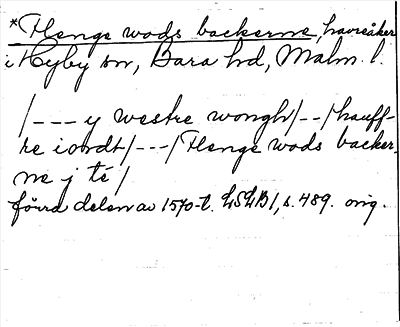 *Henge wods backerne, havreåker
i Hyby sn, Bara hd, Malm. l.
/--- y westre wongh/--/hauff-
re iordt/---/Henge wods backer-
ne j té/
förra delen av 1570-t. LSLB 1, s. 489. orig.